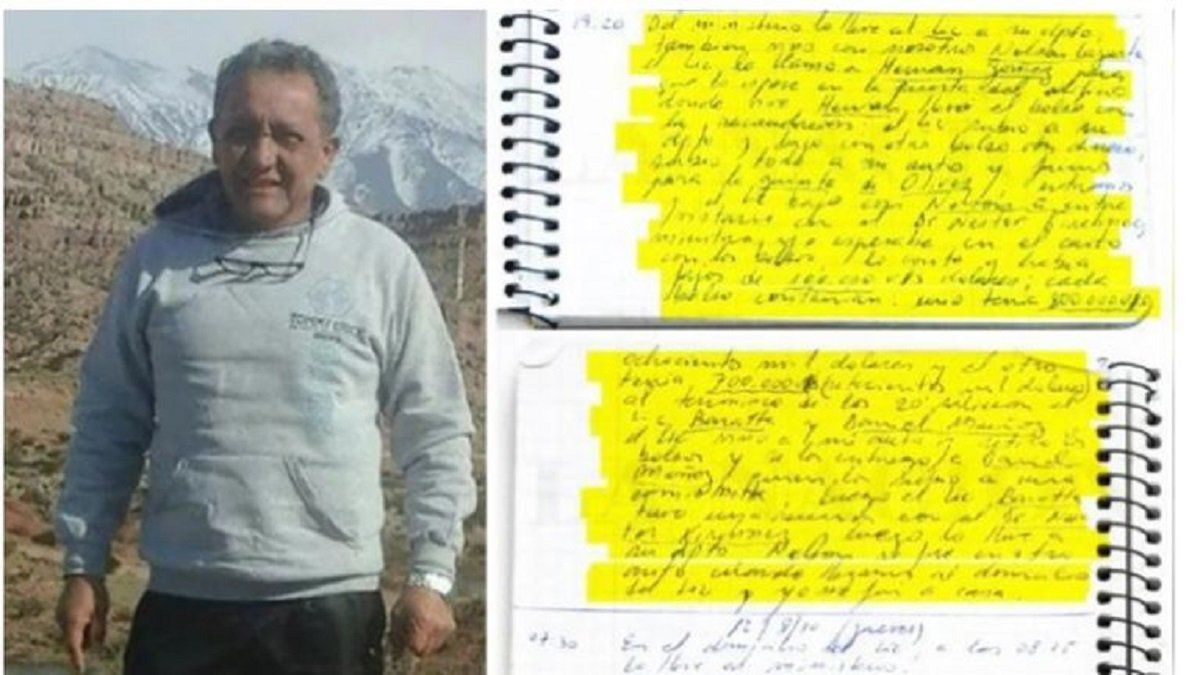 19.20 Del ministerio lo lleve al Lic a su dpto,
tambien vino con nosotro Nelson
el Lic lo llamo a Hernan Gomez para
que lo espere en la puerta del edificio
donde vive Hernan llevo el bolso con
la recaudacion. el Lic subio a su
dpto y bajo con otro bolso con dinero,
subio todo a mi auto y fuimos
para la quinta de Olivos,
el Lic bajo con Nelson a entre
vistarse con el Dr Nestor Kirchner,
mientras yo esperaba en el auto
con los bolsos
fajos de 100.000 dolares, cada
bolso contenian: uno tenia 800.000 U$D
ochocientos mil dolares y el otro
tenia 700.000 (setecientos mil dolares)
al termino de los 20 minutos el
Lic Baratta y Daniel Muñoz
el Lic vino a mi auto y retiro los
bolsos y se los entrego a Daniel
Muñoz, quien lo subio a una
camioneta. luego el Lic Baratta
tuvo una reunion con el Dr Nes
tor Kirchner y luego lo lleve a
su dpto Nelson se fue en otro
auto cuando llegamos al domicilio
del Lic y yo me fui a casa.
12/8/10 (jueves)
07.30 En el domicilio del Lic, a las 08.15
lo lleve al ministerio.